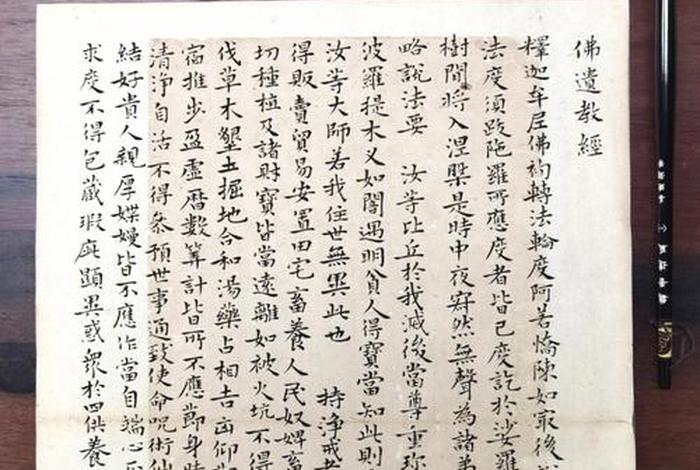 佛遺教經
釋迦牟尼佛初轉法輪度阿若憍陳如最後
法度須跋陁羅所應度者皆已度訖於娑羅
樹間將入涅槃是時中夜寂然無聲為諸弟
略說法要 汝等比丘於我滅後當尊重珍
波羅提木叉如闇遇明貧人得寶當知此則
汝等大師若我住世無異此也 持淨戒者
得販賣貿易安置田宅畜養人民奴婢畜
切種植及諸財寶皆當遠離如被火坑不得
伐草木墾土掘地合和湯藥占相吉凶仰觀
宿推步盈虛曆數筭計皆所不應節身時
清淨自活不得參預世事通致使命呪術仙
結好貴人親厚媟嫚皆不應作當自端心正
求度不得包藏瑕疵顯異惑衆於四供養